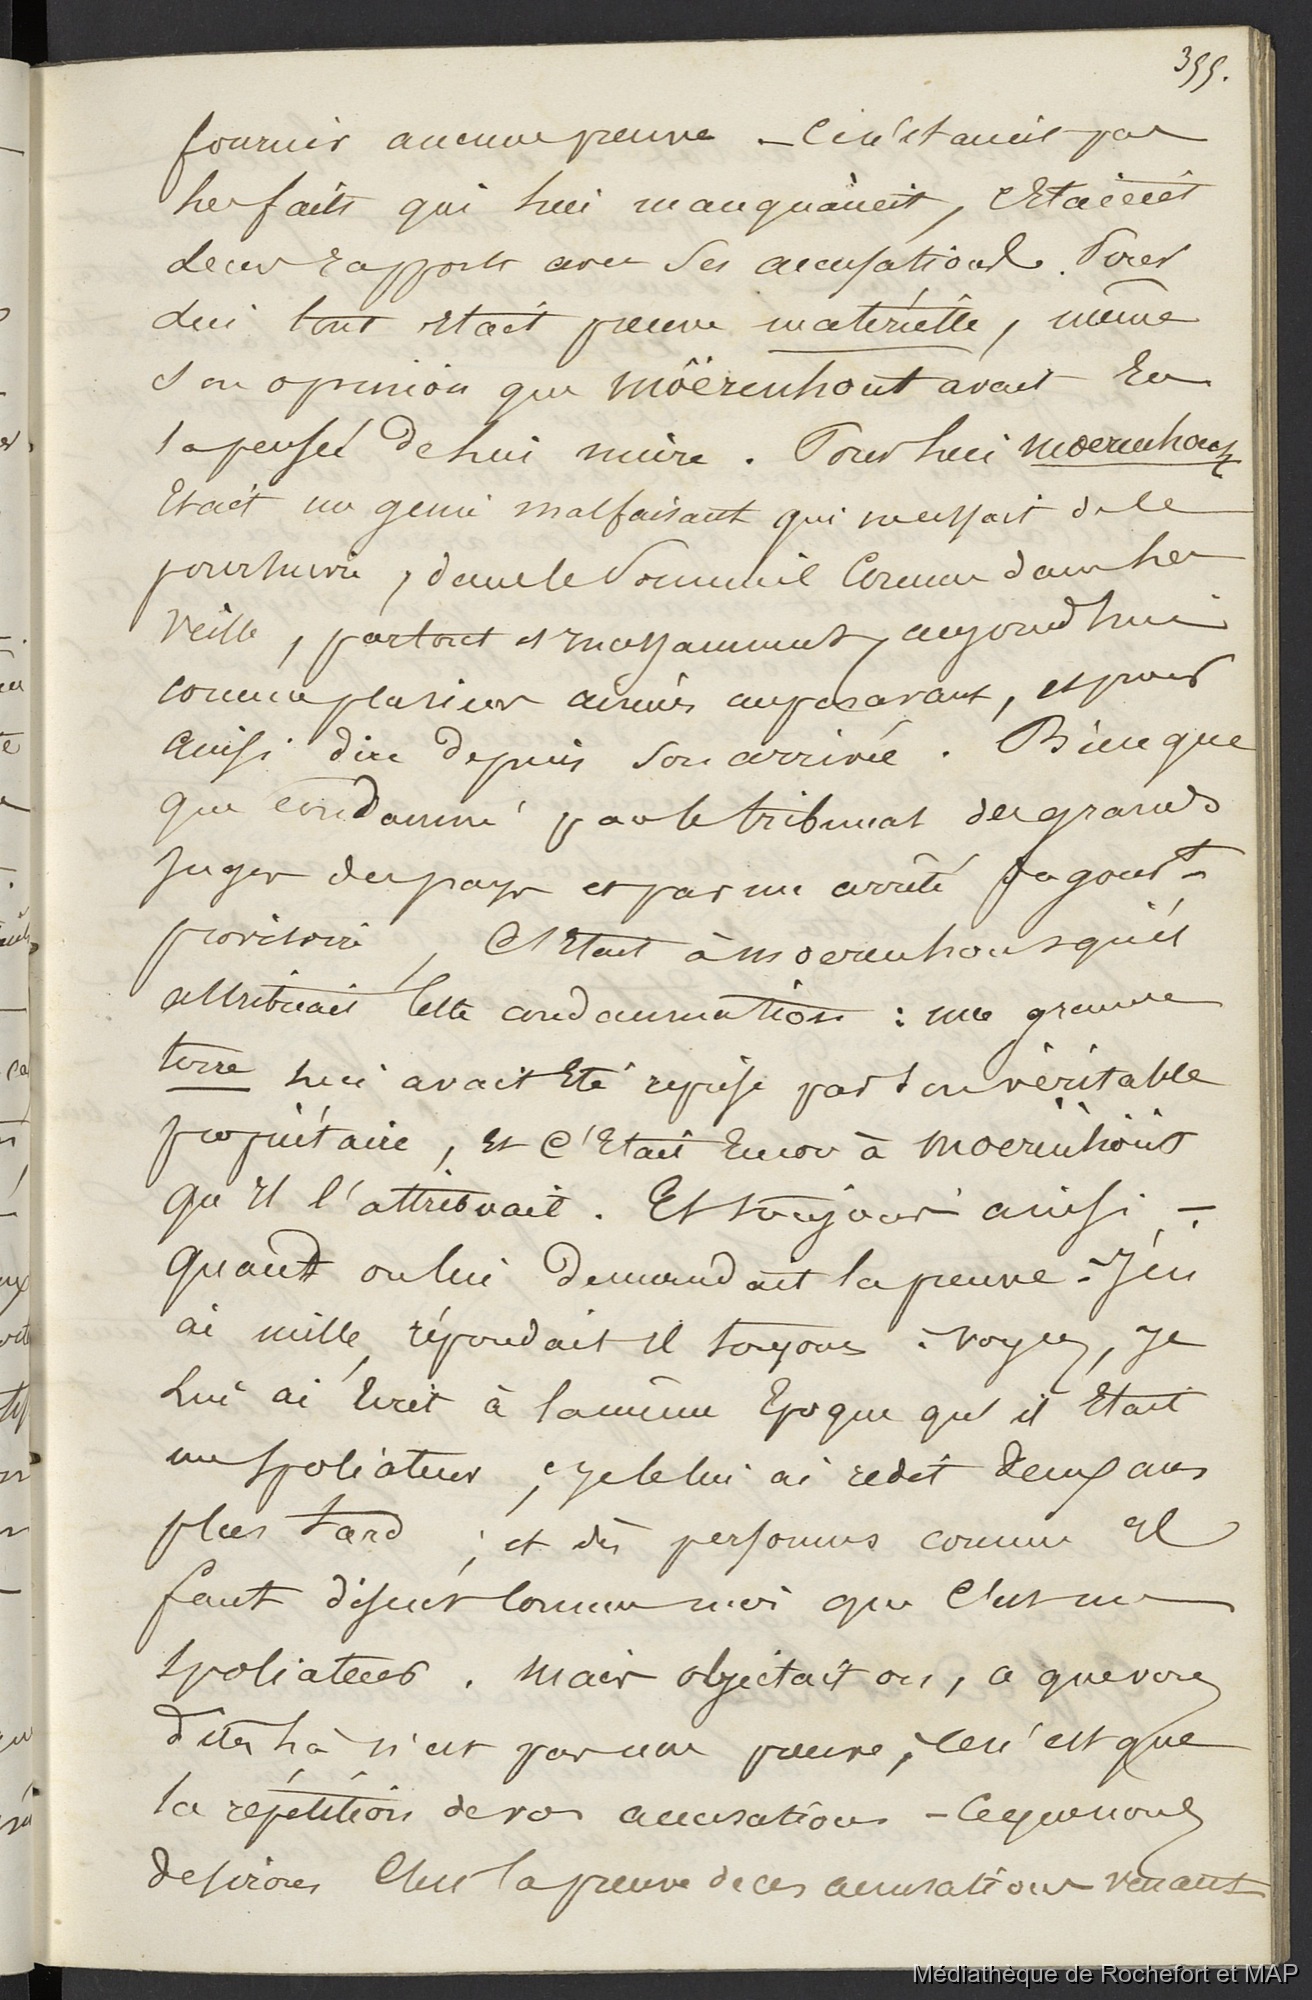 399.
fournir aucune preuve - Ce n'étaient pas
les faits qui lui manquaient, c'étaient
leurs rapports avec ses accusations. Pour
lui tout était preuve matérielle, même
son opinion que Möerenhout avait eu
la pensée de lui nuire. Pour lui Moerenhout
était un genie malfaisant qui cessait de le
poursuivre, dans le sommeil comme dans les
veille, partout et incessamment, aujourd'hui
comme plusieurs années auparavant, et pour
ainsi dire depuis son arrivée. Bien que
que condamné par le tribunal des grands
juges du pays et par un arrêté du gouvt
provisoire, c'était à Moerenhout qu'il
attribuait cette condamnation : une
terre lui avait été reprise par son véritable
propriétaire, et c'était encor à Moerenhout
qu'il l'attribuait. Et toujours ainsi -
Quand on lui demandait la preuve - J'en
ai mille, répondait il toujours : voyez, je
lui ai écrit à la même époque qu'il était
un spoliateur, je le lui ai redit deux ans
plus tard ; et des personnes comme il
faut disent comme moi que c'est un
spoliateur. Mais objectait on, ce que vous
dites là n'est pas une preuve, ce n'est que
la répétition de vos accusations - Ce que nous
desirons c'est la preuve de ces accusations venant
Médiathèque de Rochefort et MAP